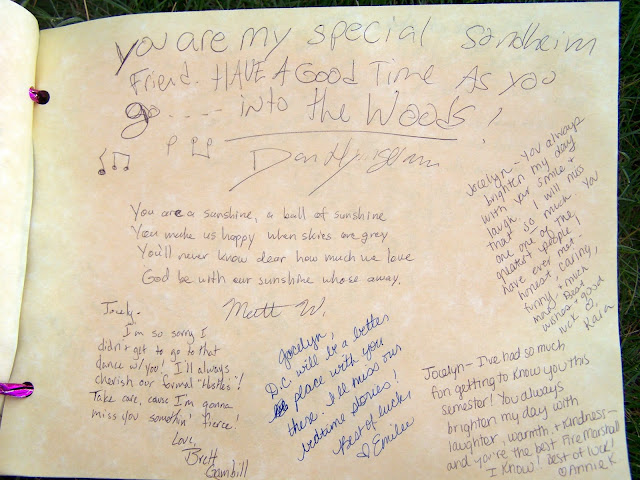 You are my special Sondheim
Friend. HAVE A Good Time As you
go . . . . . into the Woods!
You are a sunshine, a ball of sunshine
You make us happy when skies are grey
You'll never know dear how much we love
God be with our sunshine whose away.
Matt W.
Jocelyn - You always
brighten my day
with your smile +
laugh. I will miss
that so much. You
are one of the
greatest people I
have ever met -
honest, caring,
funny + much
more. Best
wishes + good
luck
Kara
Jocely-
I'm so sorry I
didn't get to go to that
dance w/you! I'll always
cherish our formal "tustles"!
Take care, cause I'm gonna
miss you somethin' fierce!
Love,
Brett
Gambill
Jocelyn,
D.C. will be a better
place with you
there. I'll miss our
bedtime stories!
Best of luck,
Emilee
Jocelyn - I've had so much
fun getting to know you this
semester! You always
brighten my day with
laughter, warmth, + kindness-
and you're the best Fire Marshall
I know! Best of luck!
Annie K.